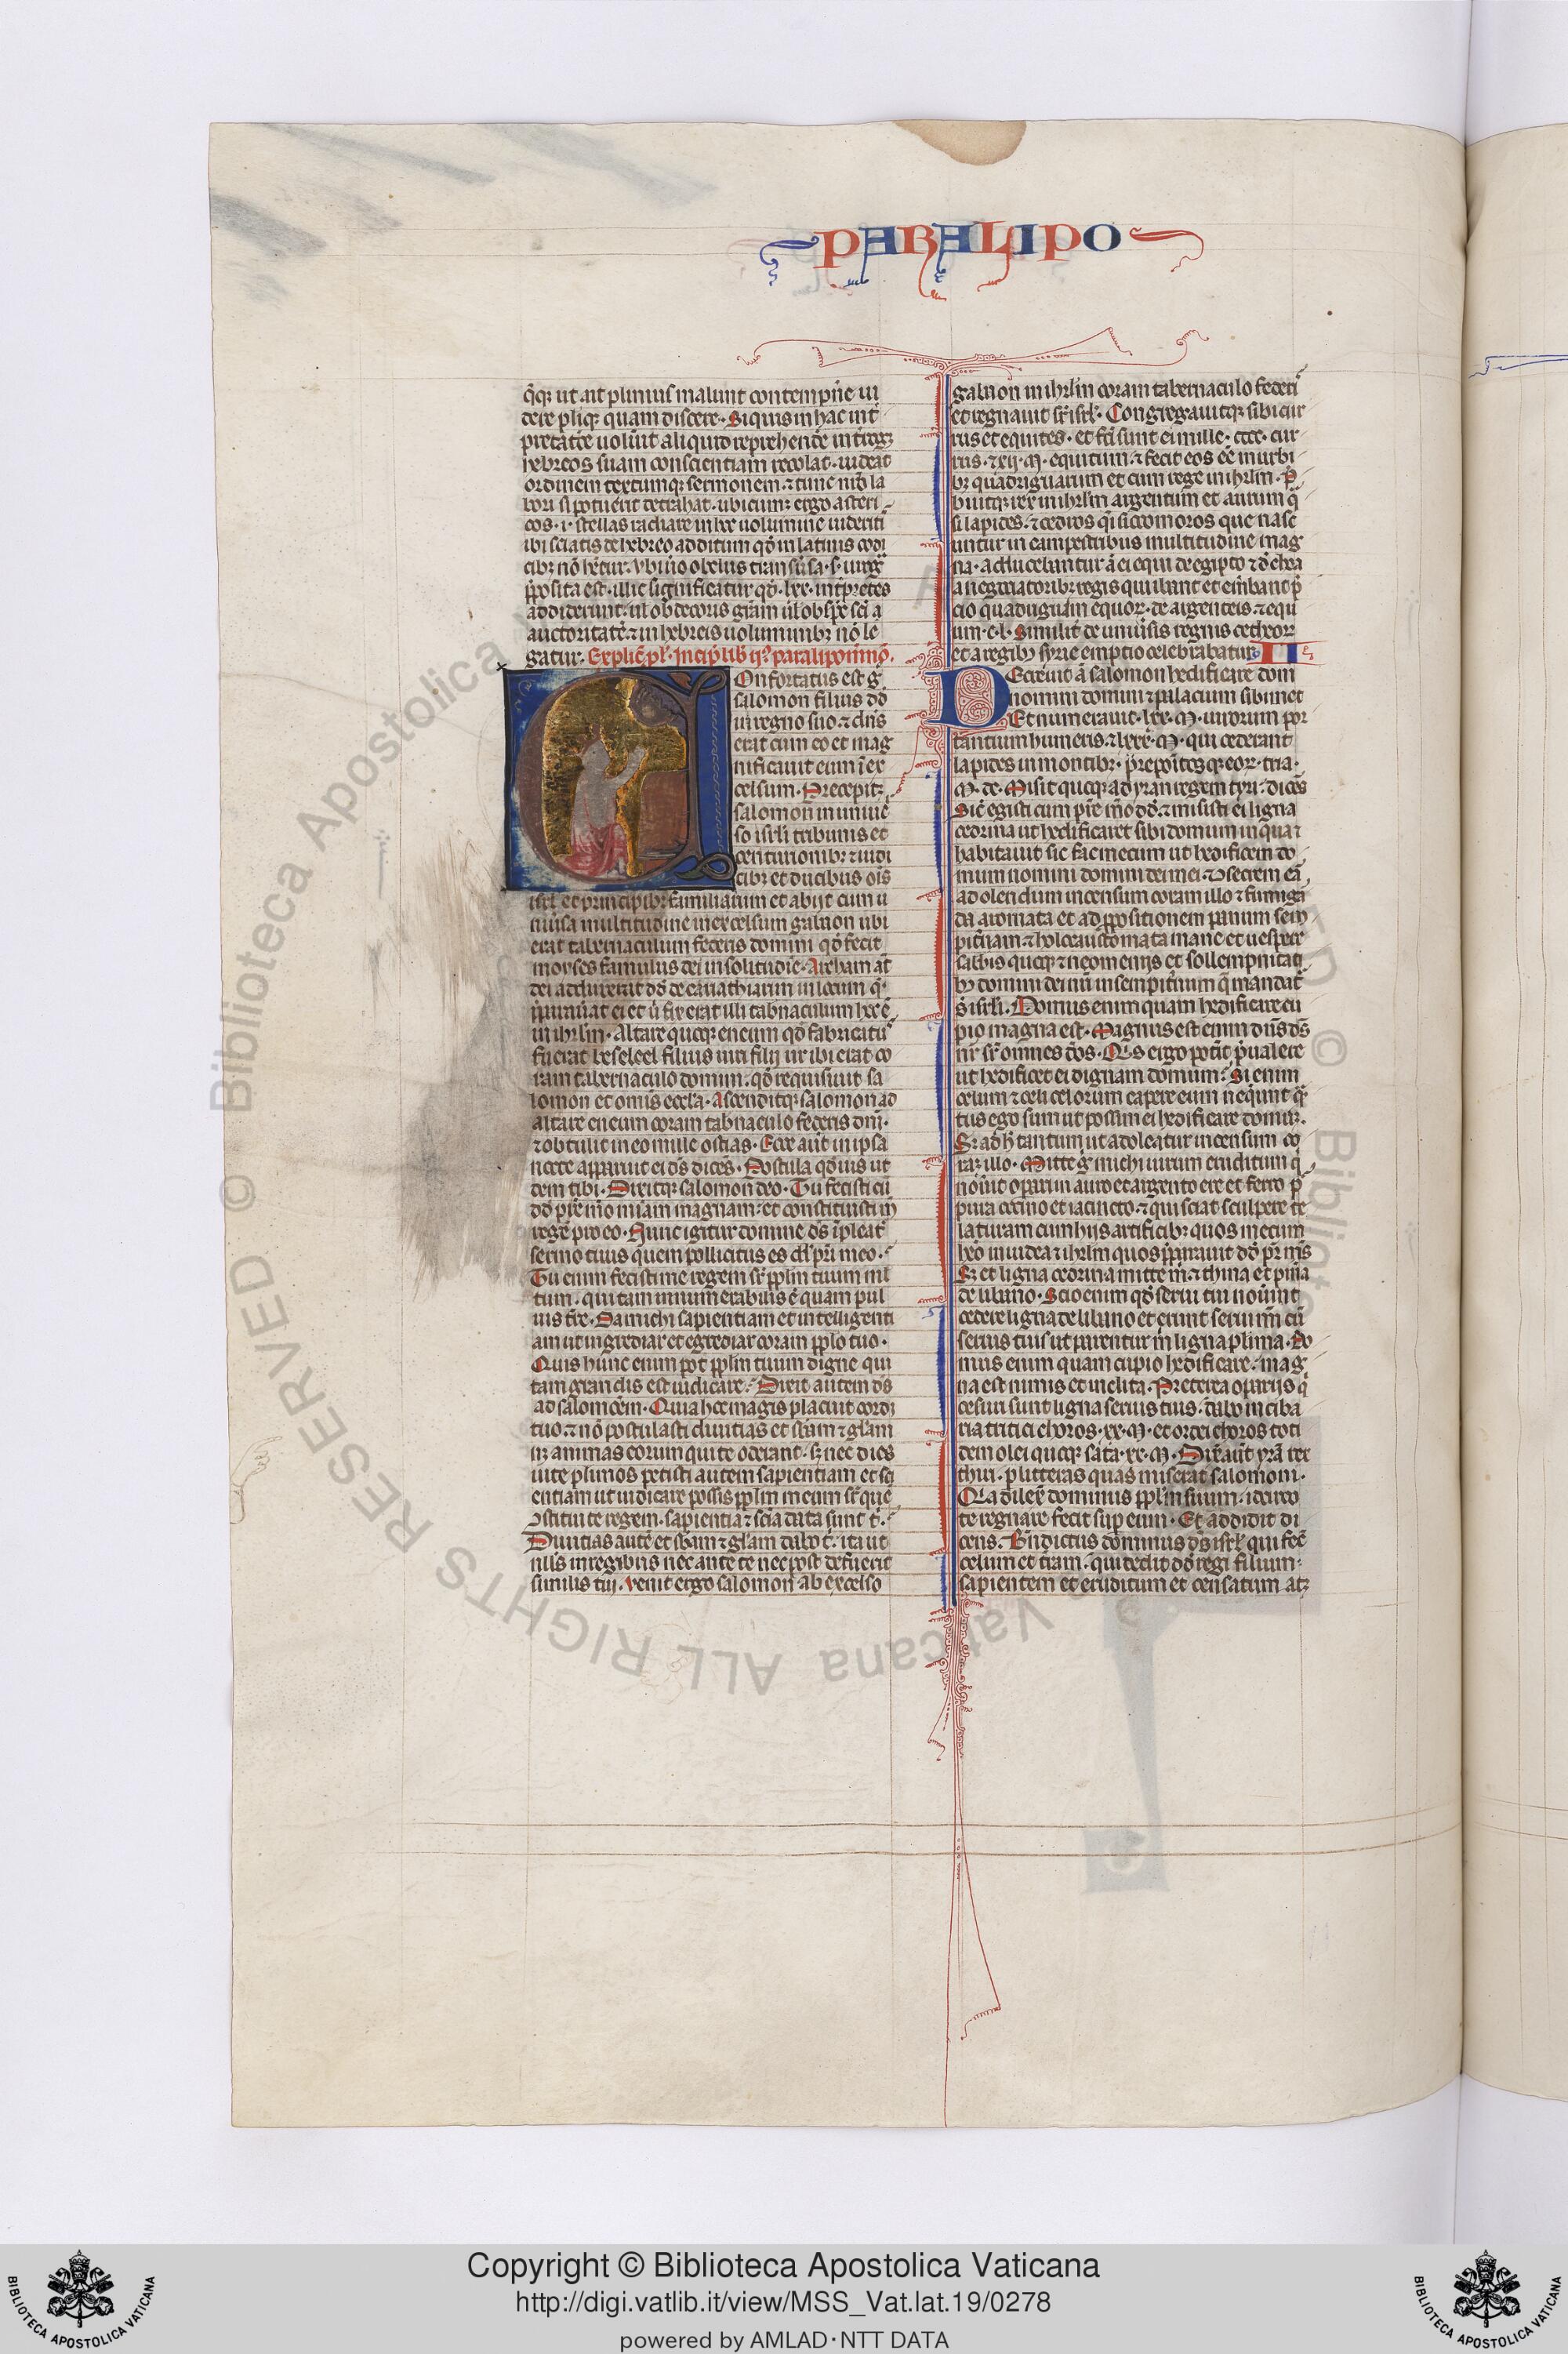 PARALIPO
q̄qꝫ ut ait plinius malunt contempn̄e ui
dere pliqꝫ quam discere. Si quis in hac int̄
pretatōe uolūit aliquid reprehendē int̄roget
hebreos suam conscientiam recolat. uideat
ordinem textumqꝫ sermonem. ⁊ tunc nr̄o la
bori si potuerit detrahat. ubicumꝫ ergo asteri
cos .i. stellas radiare in hoc uolumine uideritis
ibi sciatis de hebreo additum qd̄ in latinis codi
cibꝫ nō het̄ur. Vbi ūo obelus transūsa .s. uirga
p̄posita est. illic significatur qd̄ .lxx. int̄pretes
addiderunt. ul̄ ob decoris gr̄am ul̄ ob spc̄ sc̄i a
auctoritatē. ⁊ in hebreis uoluminibꝫ nō le
gatur. Explic̄ pl̄. Incip̄ lib̄ ijꝰ paralipomēnō.
Confortatus est g̊
salomon filius dd̄
in regno suo. ⁊ dn̄s
erat cum eo et mag
nificauit eum ī ex
celsum. Precepitꝫ
salomon in uniuē
so isrl̄i tribunis et
centurionibꝫ ⁊ iudi
cibꝫ et ducibus oīs
isrl̄. et principibꝫ familiarum et abijt cum u
niūsa multitudine in excelsum gabaon ubi
erat tabernaculum federis domini qd̄ fecit
moyses famulus dei in solitudīe. Archam aūt
dei adduxerat dd̄ de cariathiarim in locum q̄
p̄parauat ei et ū fixerat illi tab̄naculum hoc ē
in ihrl̄m. Altare quoqꝫ eneum qd̄ fabricatū
fuerat beseleel filius uri filij ur ibi erat co
ram tabernaculo domini. qd̄ requisiuit sa
lomon et omīs eccl̄a. Ascenditqꝫ salomon ad
altare eneum coram tab̄naculo federis dn̄i.
⁊ obtulit in eo mille ostias. Ecce aūt in ipsa
nocte apparuit ei ds̄ dicēs. Postula qd̄ uis ut
dem tibi. Dixitqꝫ salomon deo. Tu fecisti cū
dd̄ pr̄e m̄o mīam magnam. et constituisti m̄
regē pro eo. Nunc igitur domine ds̄ īpleat̄
sermo tuus quem pollicitus es dd̄ pr̄i meo.
Tu enim fecisti me regem sr̄ ppl̄m tuum ml̄
tum. qui tam innumerabilis ē quam pul
uis tr̄e. Da michi sapientiam et intelligenti
am ut ingrediar et egrediar coram ppl̄o tuo.
Quis hunc enim pōt ppl̄m tuum digne qui
tam grandis est iudicare. Dixit autem ds̄
ad salomōem. Quia hoc magis placuit cordi
tuo. ⁊ nō postulasti diuitias et sb̄am ⁊ gl̄am
nꝫ animas eorum qui te oderant. sꝫ nec dies
uite plūmos petisti autem sapientiam et sci
entiam ut iudicare possis ppl̄m meum sr̄ que
ꝯstitui te regem. sapientia ⁊ scīa data sunt t̄.
Diuitias autē et sb̄am ⁊ gl̄am dabo t̄. ita ut
nll̄s in regibus nec ante te nec post te fuerit
similis tui. Venit ergo salomon ab excelso
gabaon in ihrl̄m coram tabernaculo federis
et regnauit sr̄ isrl̄. Congregauitqꝫ sibi cur
rus et equites. et fc̄i sunt ei mille .cccc. cur
rus. ⁊ xij. M. equitum. ⁊ fecit eos ēē in urbi
bꝫ quadrigarum et cum rege in ihrl̄m. P̄
buitqꝫ rex in ihrl̄m argentum et aurum q̄
si lapides. ⁊ cedros q̄i sicomoros que nasc
untur in campestribus multitudine mag
na. adducebantur ā ei equi de egipto ⁊ de choa
a negociatoribꝫ regis qui ibant et emebant p̄
cio quadrigam equoꝝ. de argenteis ⁊ equ
um .c.l. Similit̄ de uniūsis regnis cetheoꝝ
et a regibꝫ syrie emptio celebrabatur. II
Decreuit ā salomon hedificare dom
nomini domini ⁊ palacium sibimet
Et numerauit .lxx. M. uirorum por
tantium humeris. ⁊ lxxx. M. qui cederant
lapides in montibꝫ. prepositosqꝫ eoꝝ. tria.
M. dc. Misit quoqꝫ ad yram regem tyri. dicēs
Sic̄ egisti cum pr̄e m̄o dd̄. ⁊ misisti ei ligna
cedrina ut hedificaret sibi domum in qua ⁊
habitauit sic fac mecum ut hedificem do
mum nomini domini dei mei. ⁊ ꝯsecrem eā
ad olendum incensum coram illo ⁊ fumigā
da aromata et ad p̄positionem panum semp
pit̄nam ⁊ holocaustomata mane et uespere
sabbis quoqꝫ ⁊ neomenijs et sollempnitati
bꝫ domini dei nr̄i in sempit̄num q̄ mandat̄
s̄ isrl̄i. Domus enim quam hedificare cu
pio magna est. Magnus est enim dn̄s ds̄
nr̄ sr̄ omnes dōs. Quis ergo pot̄it p̄ualere
ut hedificet ei dignam domum. Si enim
celum ⁊ celi celorum capere eum neq̄unt q̄
tus ego sum ut possim ei hedificare domū.
Sꝫ ad h̄ tantum ut adoleatur incensum co
rā illo. Mitte g̊ michi uirum eruditum q̄
nouit opari in auro et argento ere et ferro p̄
pura coccino et iacincto. ⁊ qui sciat sculpere ce
laturam cum hijs artificibꝫ quos mecum
heo in iudea ⁊ ihrl̄m quos p̄parauit dd̄ pr̄ m̄s
Sꝫ et ligna cedrina mitte m̄ ⁊ thina et pinia
de libano. Scio enim qd̄ serui tui nouerint
cedere ligna de libano et erunt serui m̄i cū
seruis tuis ut parentur m̄ ligna plīma. Do
mus enim quam cupio hedificare. mag
na est nimis et inclita. Preterea oparijs q̄
cesuri sunt ligna seruis tuis. dabo in ciba
ria tritici choros .xx. M. et ordei choros toti
dem olei quoqꝫ sata .xx. M. Dix̄ aūt yrā rex
thiri. p litteras quas miserat salomoni.
Quia dilex̄ dominus ppl̄m suum. idcirco
te regnare fecit sup eum. Et addidit di
cens. Bn̄dictus dominus ds̄ isrl̄ qui fec̄
celum et t̄ram. qui dedit dd̄ regi filium
sapientem et eruditum et censatum atꝫ
Copyright © Biblioteca Apostolica Vaticana
http://digi.vatlib.it/view/MSS_Vat.lat.19/0278
powered by AMLAD·NTT DATA
BIBLIOTECA APOSTOLICA VATICANA
BIBLIOTECA APOSTOLICA VATICANA
© Biblioteca Apostolica Vaticana ALL RIGHTS RESERVED